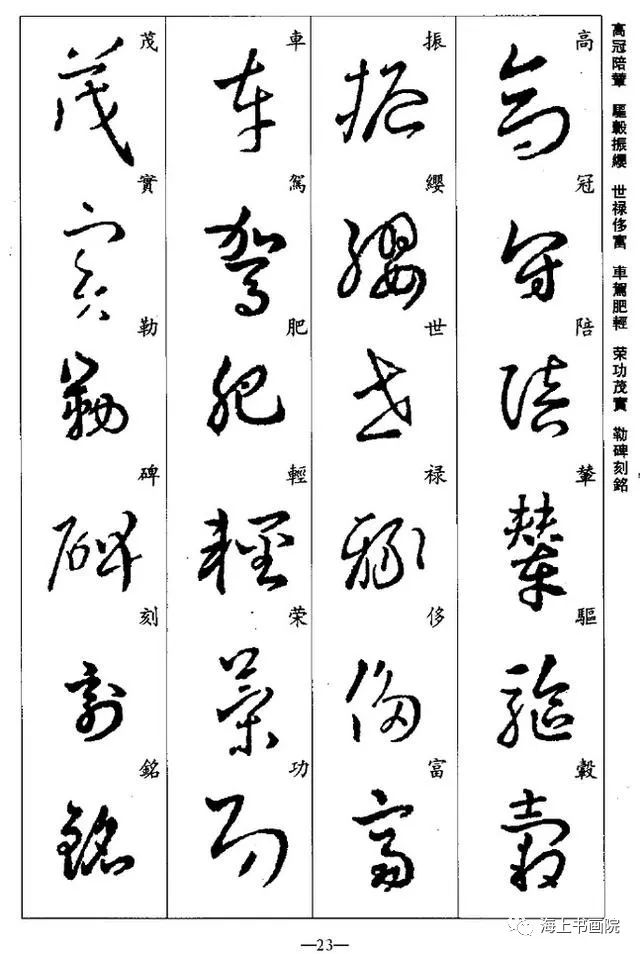 高冠陪輦 驅轂振纓 世禄侈富 車駕肥輕 荣功茂實 勒碑刻銘
高冠陪輦驅轂
振纓世禄侈富
車駕肥輕荣功
茂實勒碑刻銘
—23—
海上书画院